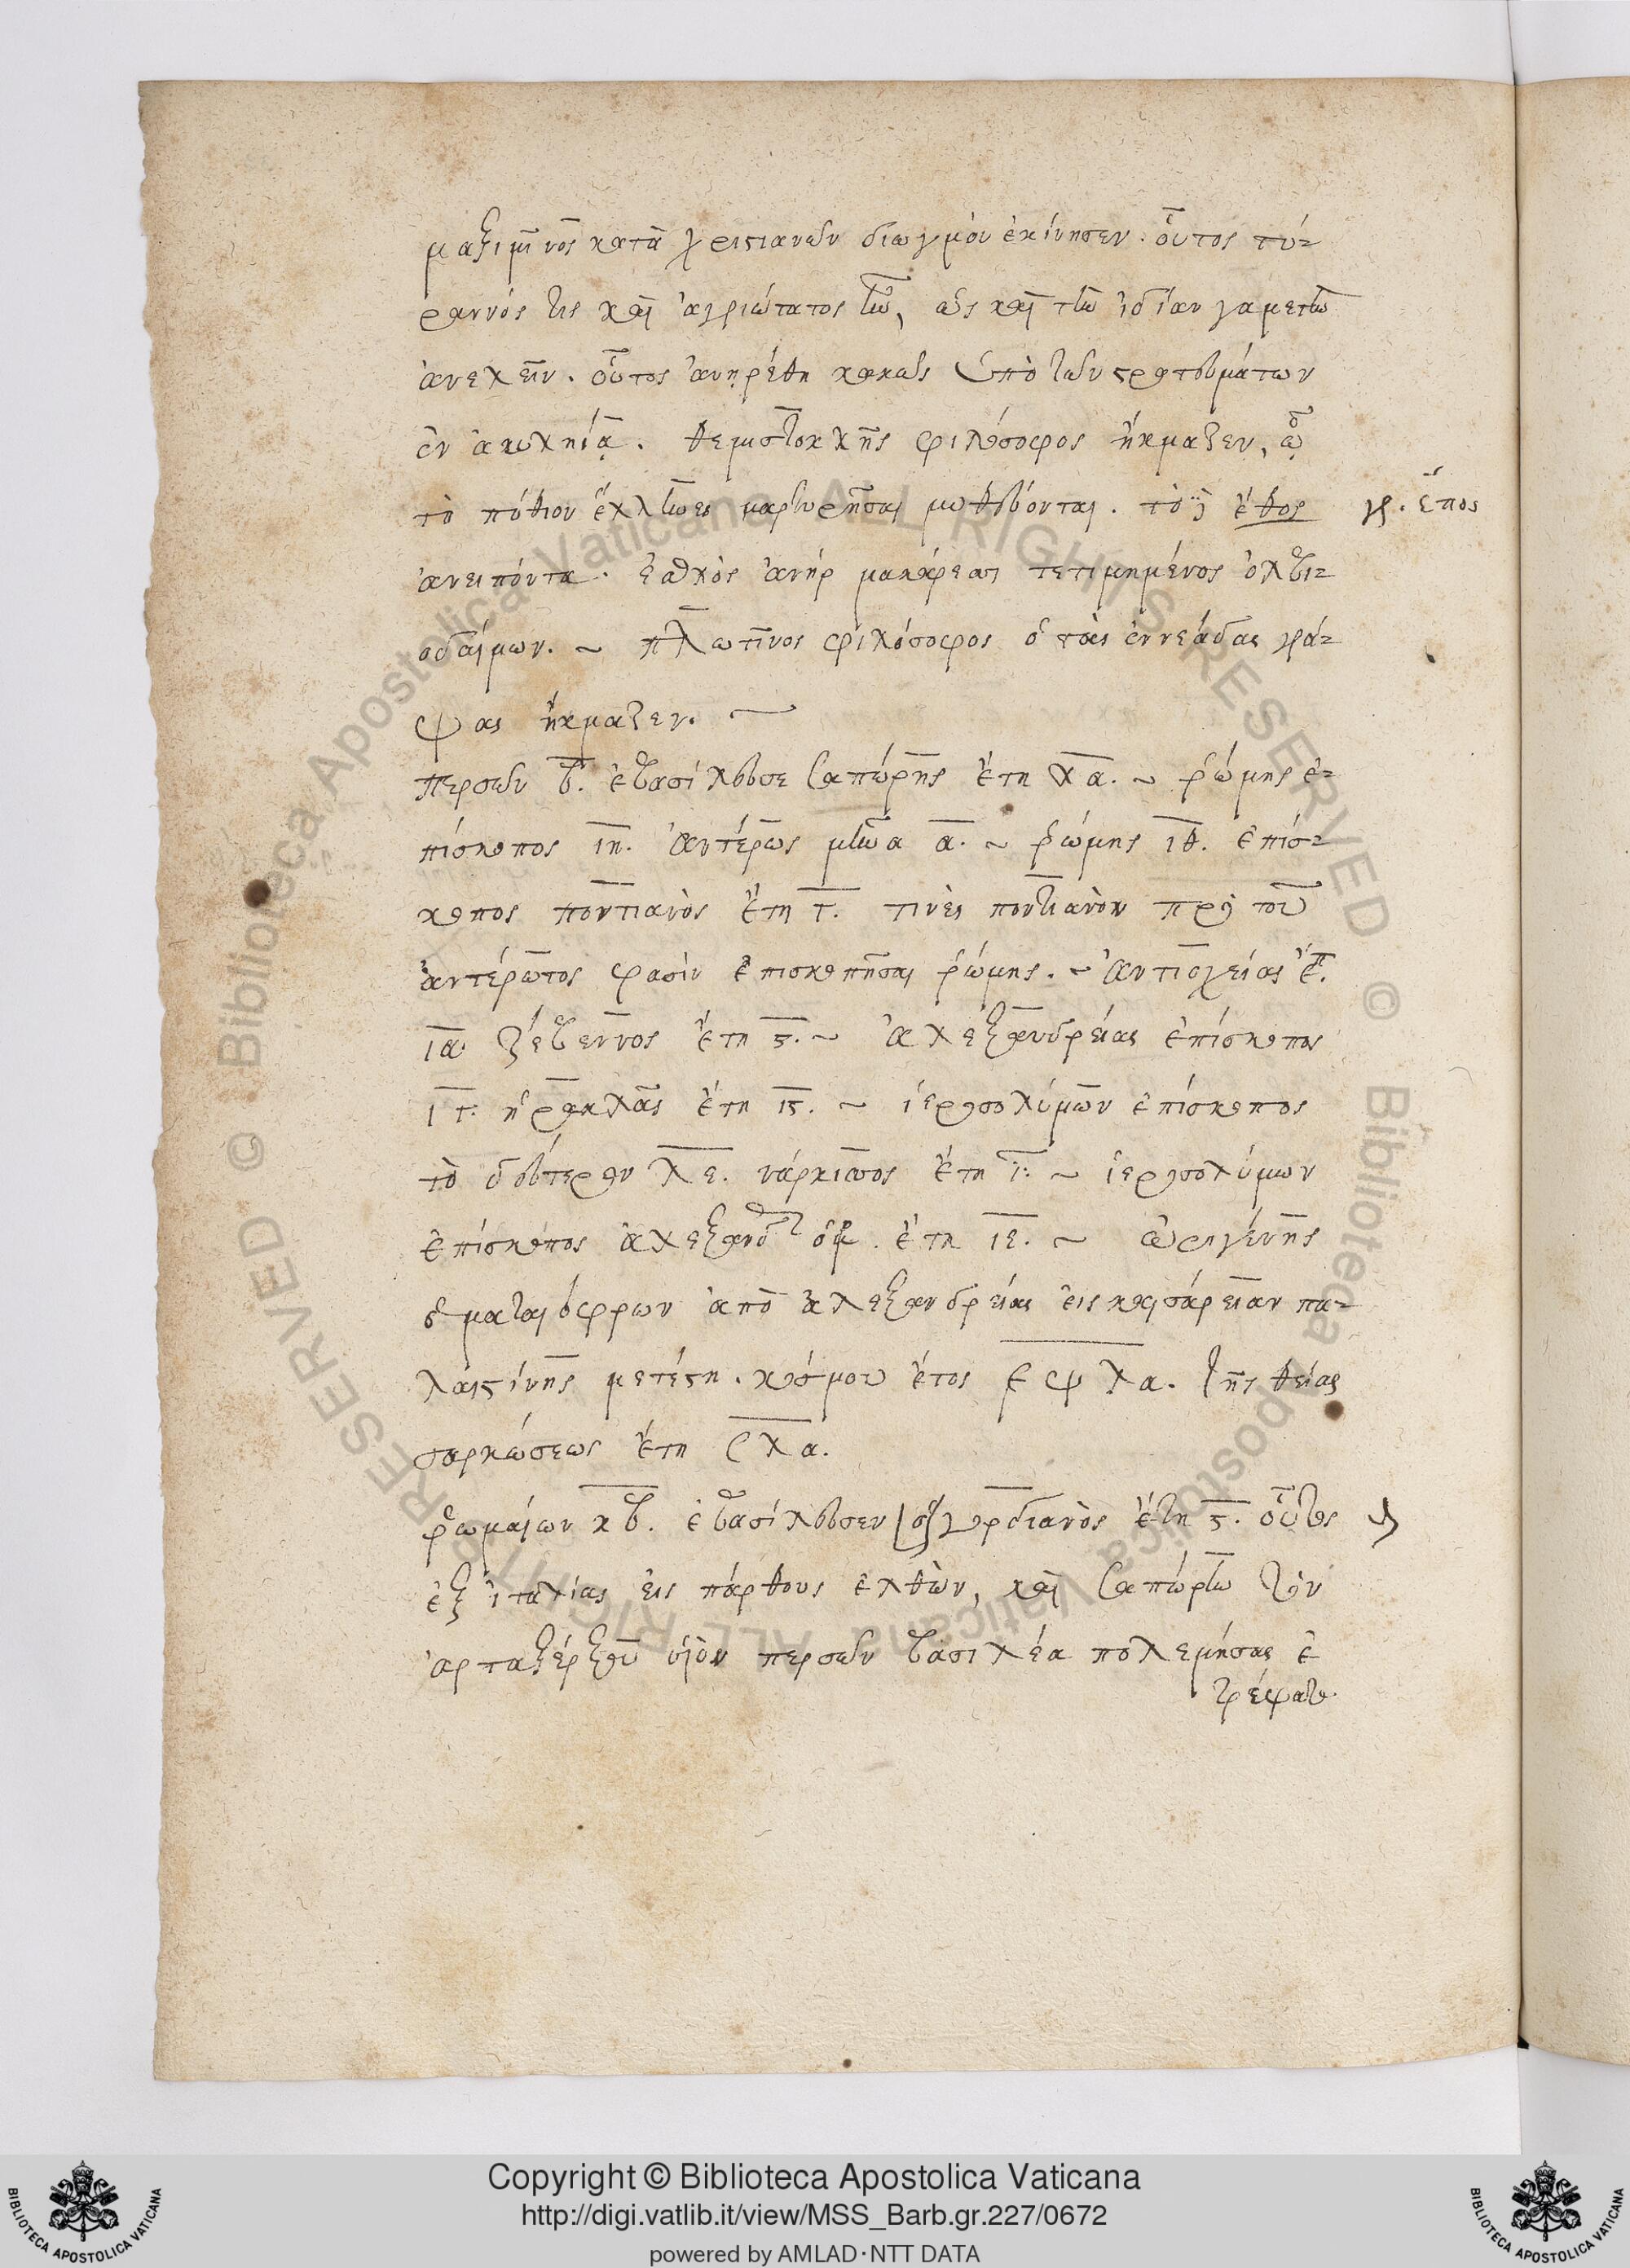 μαξιμῖνος κατὰ χριστιανῶν διωγμὸν ἐκίνησεν. οὗτος τύ-
ραννός τις καὶ ἀγριώτατος ἦν, ὡς καὶ τὴν ἰδίαν γαμετὴν
ἀνελεῖν. οὗτος ἀνῃρέθη κακῶς ὑπὸ τῶν στρατευμάτων
ἐν ἀκυληΐᾳ. θεμιστοκλῆς φιλόσοφος ἤκμαζεν, ᾧ
τὸ πύθιον ἕλληνες μαρτυρῆσαι μυθεύονται. τὸ ἔθος
γρ. ἔπος
ἀνειπόντα. ἐσθλὸς ἀνὴρ μακάρεσσι τετιμημένος ὀλβι-
οδαίμων. ~ πλωτῖνος φιλόσοφος ὁ τὰς ἐννεάδας γρά-
ψας ἤκμαζεν.
περσῶν β. ἐβασίλευσε σαπώρης ἔτη λα. ~ ῥώμης ἐ-
πίσκοπος ιη. ἀντέρως μῆνα α. ~ ῥώμης ιθ. ἐπίσ-
κοπος ποντιανὸς ἔτη γ. τινὲς ποντιανὸν πρὸ τοῦ
ἀντέρωτος φασὶν ἐπισκοπῆσαι ῥώμης. ~ ἀντιοχείας ἐπ.
ια. ζέβεννος ἔτη ϛ. ~ ἀλεξανδρείας ἐπίσκοπος
ιγ. ἡρακλᾶς ἔτη ιϛ. ~ ἱεροσολύμων ἐπίσκοπος
τὸ δεύτερον λε. νάρκισσος ἔτη ι. ~ ἱεροσολύμων
ἐπίσκοπος ἀλέξανδ ἔτη ιε. ~ ὠριγένης
ὁ ματαιόφρων ἀπὸ ἀλεξανδρείας εἰς καισάρειαν πα-
λαιστίνης μετέστη. κόσμου ἔτος εψλα. τῆς θείας
σαρκώσεως ἔτη σλα.
ῥωμαίων κβ. ἐβασίλευσεν γορδιανὸς ἔτη ϛ. οὗτος
ἐξ ἰταλίας εἰς πάρθους ἐλθὼν, καὶ σαπώρην τὸν
ἀρταξέρξου υἱὸν περσῶν βασιλέα πολεμήσας ἐ
τρέψατο
Copyright © Biblioteca Apostolica Vaticana
http://digi.vatlib.it/view/MSS_Barb.gr.227/0672
powered by AMLAD·NTT DATA